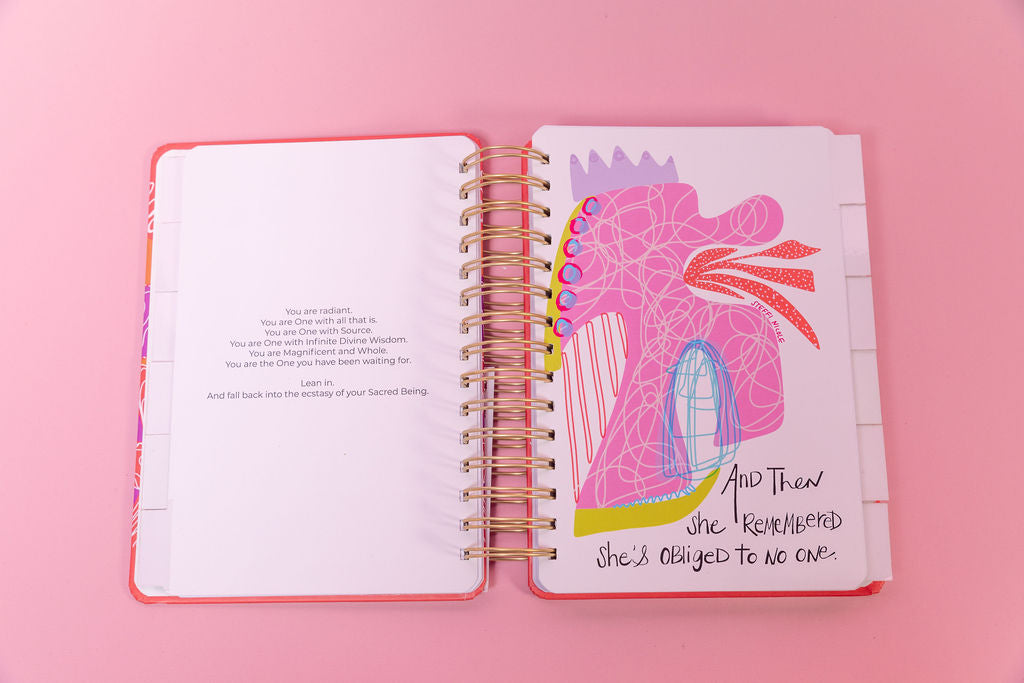 You are radiant.
You are One with all that is.
You are One with Source.
You are One with Infinite Divine Wisdom.
You are Magnificent and Whole.
You are the One you have been waiting for.
Lean in.
And fall back into the ecstasy of your Sacred Being.
STEFFI NICOLE
And Then
she REMEMBERED
she's OBligeD to no one.